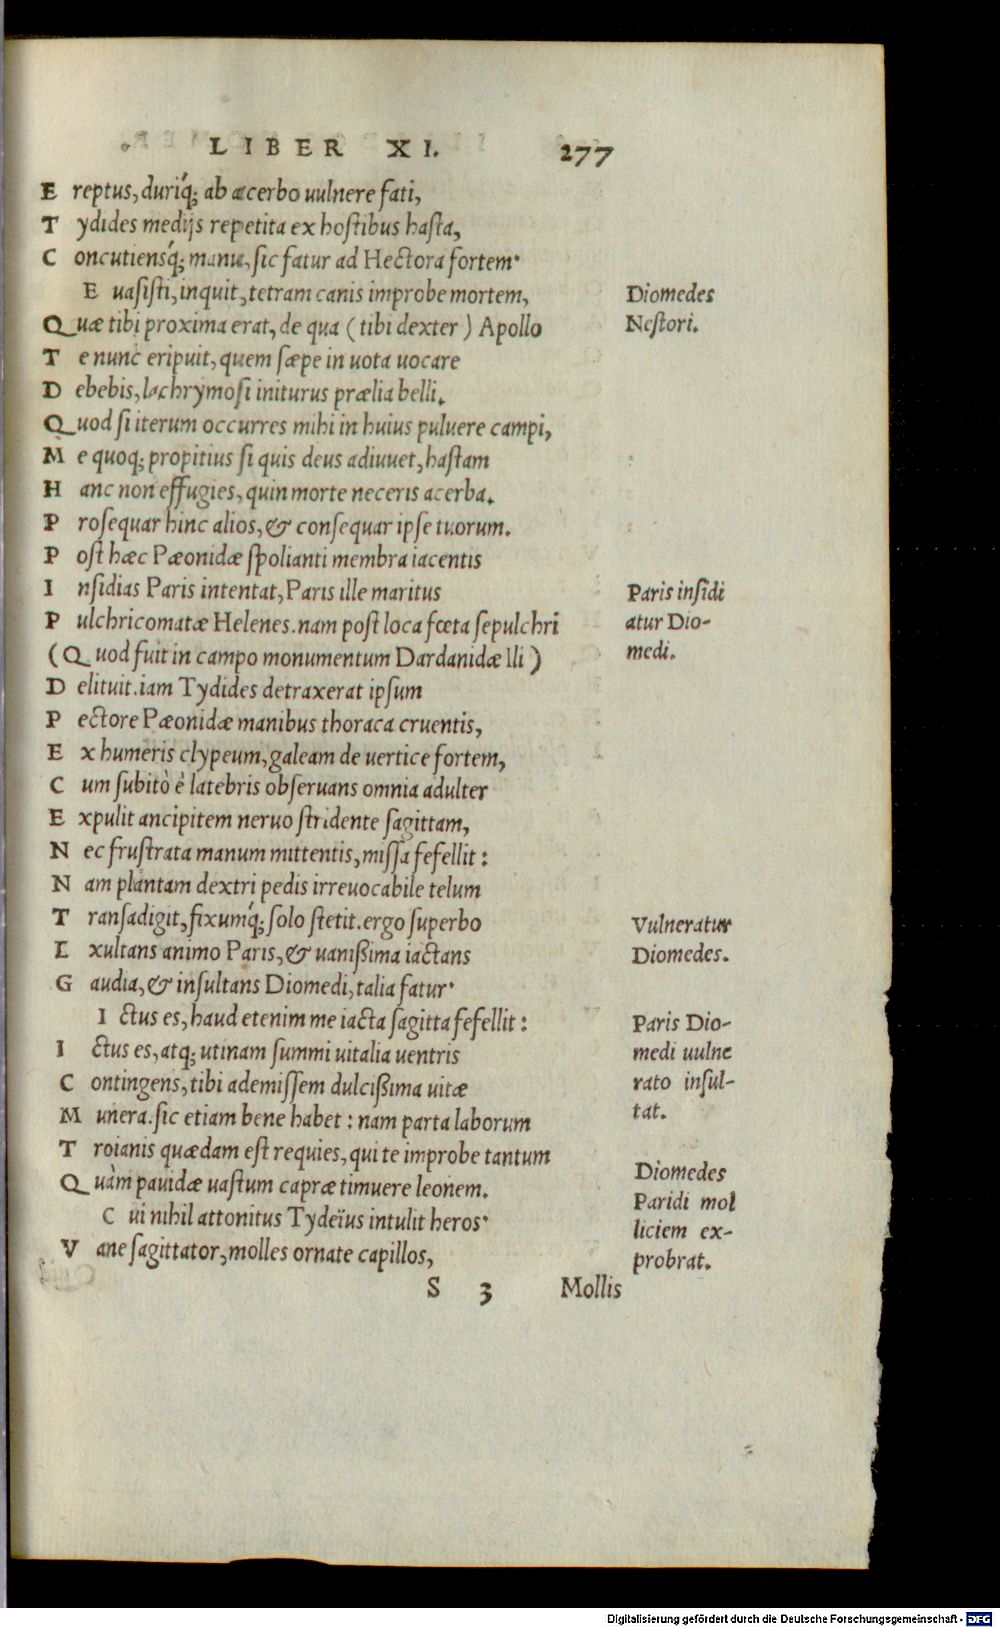 LIBER XI. 277
Ereptus, duriq́; ab acerbo uulnere fati,
Tydides medijs repetita ex hostibus hasta,
Concutiensq́; manu, sic fatur ad Hectora fortem·
Euasisti, inquit, tetram canis improbe mortem,
Quæ tibi proxima erat, de qua (tibi dexter) Apollo
Te nunc eripuit, quem sæpe in uota uocare
Debebis, lachrymosi initurus prælia belli.
Quod si iterum occurres mihi in huius puluere campi,
Me quoq; propitius si quis deus adiuuet, hastam
Hanc non effugies, quin morte neceris acerba.
Prosequar hinc alios, & consequar ipse tuorum.
Post hæc Pæonidæ spolianti membra iacentis
Insidias Paris intentat, Paris ille maritus
Pulchricomatæ Helenes. nam post loca fœta sepulchri
(Quod fuit in campo monumentum Dardanidæ Ili)
Delituit. iam Tydides detraxerat ipsum
Pectore Pæonidæ manibus thoraca cruentis,
Ex humeris clypeum, galeam de uertice fortem,
Cum subitò è latebris obseruans omnia adulter
Expulit ancipitem neruo stridente sagittam,
Nec frustrata manum mittentis, missa fefellit:
Nam plantam dextri pedis irreuocabile telum
Transadigit, fixumq́; solo stetit. ergo superbo
Exultans animo Paris, & uanißima iactans
Gaudia, & insultans Diomedi, talia fatur·
Ictus es, haud etenim me iacta sagitta fefellit:
Ictus es, atq; utinam summi uitalia uentris
Contingens, tibi ademissem dulcißima uitæ
Munera. sic etiam bene habet: nam parta laborum
Troianis quædam est requies, qui te improbe tantum
Quàm pauidæ uastum capræ timuere leonem.
Cui nihil attonitus Tydeïus intulit heros·
Vane sagittator, molles ornate capillos,
S 3 Mollis
Diomedes
Nestori.
Paris insidi
atur Dio-
medi.
Vulneratur
Diomedes.
Paris Dio-
medi uulne
rato insul-
tat.
Diomedes
Paridi mol
liciem ex-
probrat.
Digitalisierung gefördert durch die Deutsche Forschungsgemeinschaft - DFG